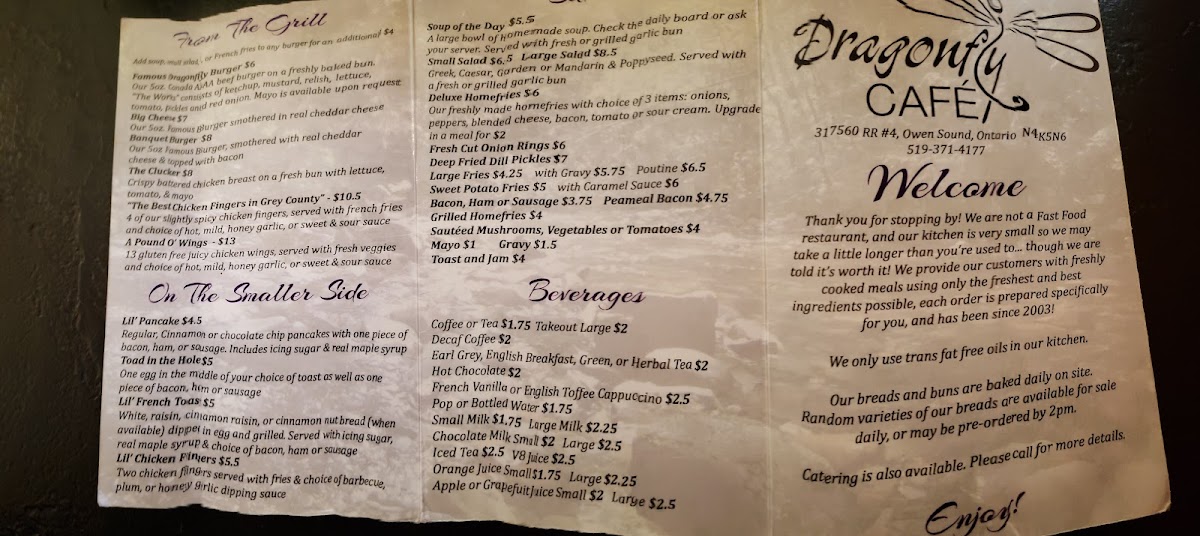 From The Grill
Add soup, small salad, or French fries to any burger for an additional $4
Famous Dragonfly Burger $6
Our 5oz. Canada A/AA beef burger on a freshly baked bun.
"The Works" consists of ketchup, mustard, relish, lettuce,
tomato, pickles and red onion. Mayo is available upon request
Big Cheese $7
Our 5oz. Famous Burger smothered in real cheddar cheese
Banquet Burger $8
Our 5oz Famous Burger, smothered with real cheddar
cheese & topped with bacon
The Clucker $8
Crispy battered chicken breast on a fresh bun with lettuce,
tomato, & mayo
"The Best Chicken Fingers in Grey County" - $10.5
4 of our slightly spicy chicken fingers, served with french fries
and choice of hot, mild, honey garlic, or sweet & sour sauce
A Pound O' Wings - $13
13 gluten free juicy chicken wings, served with fresh veggies
and choice of hot, mild, honey garlic, or sweet & sour sauce
On The Smaller Side
Lil' Pancake $4.5
Regular, Cinnamon or chocolate chip pancakes with one piece of
bacon, ham, or sausage. Includes icing sugar & real maple syrup
Toad in the Hole $5
One egg in the middle of your choice of toast as well as one
piece of bacon, ham or sausage
Lil' French Toast $5
White, raisin, cinnamon raisin, or cinnamon nut bread (when
available) dipped in egg and grilled. Served with icing sugar,
real maple syrup & choice of bacon, ham or sausage
Lil' Chicken Fingers $5.5
Two chicken fingers served with fries & choice of barbecue,
plum, or honey garlic dipping sauce
Soup of the Day $5.5
A large bowl of homemade soup. Check the daily board or ask
your server. Served with fresh or grilled garlic bun
Small Salad $6.5 Large Salad $8.5
Greek, Caesar, Garden or Mandarin & Poppyseed. Served with
a fresh or grilled garlic bun
Deluxe Homefries $6
Our freshly made homefries with choice of 3 items: onions,
peppers, blended cheese, bacon, tomato or sour cream. Upgrade
in a meal for $2
Fresh Cut Onion Rings $6
Deep Fried Dill Pickles $7
Large Fries $4.25 with Gravy $5.75 Poutine $6.5
Sweet Potato Fries $5 with Caramel Sauce $6
Bacon, Ham or Sausage $3.75 Peameal Bacon $4.75
Grilled Homefries $4
Sautéed Mushrooms, Vegetables or Tomatoes $4
Mayo $1 Gravy $1.5
Toast and Jam $4
Beverages
Coffee or Tea $1.75 Takeout Large $2
Decaf Coffee $2
Earl Grey, English Breakfast, Green, or Herbal Tea $2
Hot Chocolate $2
French Vanilla or English Toffee Cappuccino $2.5
Pop or Bottled Water $1.75
Small Milk $1.75 Large Milk $2.25
Chocolate Milk Small $2 Large $2.5
Iced Tea $2.5 V8 Juice $2.5
Orange Juice Small $1.75 Large $2.25
Apple or Grapefuit Juice Small $2 Large $2.5
Dragonfly
CAFÉ
317560 RR #4, Owen Sound, Ontario N4K5N6
519-371-4177
Welcome
Thank you for stopping by! We are not a Fast Food
restaurant, and our kitchen is very small so we may
take a little longer than you're used to... though we are
told it's worth it! We provide our customers with freshly
cooked meals using only the freshest and best
ingredients possible, each order is prepared specifically
for you, and has been since 2003!
We only use trans fat free oils in our kitchen.
Our breads and buns are baked daily on site.
Random varieties of our breads are available for sale
daily, or may be pre-ordered by 2pm.
Catering is also available. Please call for more details.
Enjoy!